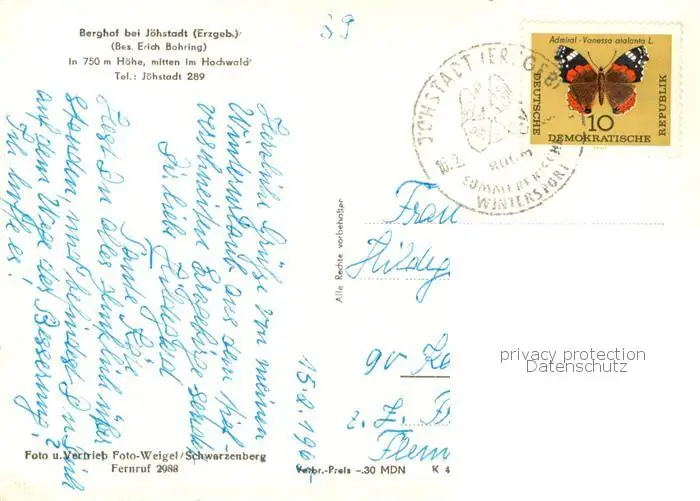 Berghof bei Jöhstadt (Erzgeb.)
(Bes. Erich Bohring)
In 750 m Höhe, mitten im Hochwald
Tel.: Jöhstadt 289
89
Admiral - Vanessa atalanta L.
DEUTSCHE
10
DEMOKRATISCHE
REPUBLIK
JÖHSTADT (ERZGEB)
16.2.
SOMMERFRISCHE
WINTERSPORT
Herzliche Grüße von meinem
Winterurlaub aus dem tief
verschneiten Erzgebirge sendet
Dir liebe Hildegard
Tante
Hast Du alles glücklich über
standen und befindest Dich
auf dem Wege der Besserung?
Ich hoffe es!
15.2.196
Alle Rechte vorbehalten
Frau
Hildeg
z. Z.
privacy protection
Datenschutz
Foto u. Vertrieb Foto-Weigel/Schwarzenberg
Fernruf 2988
Verbr.-Preis -.30 MDN K 4